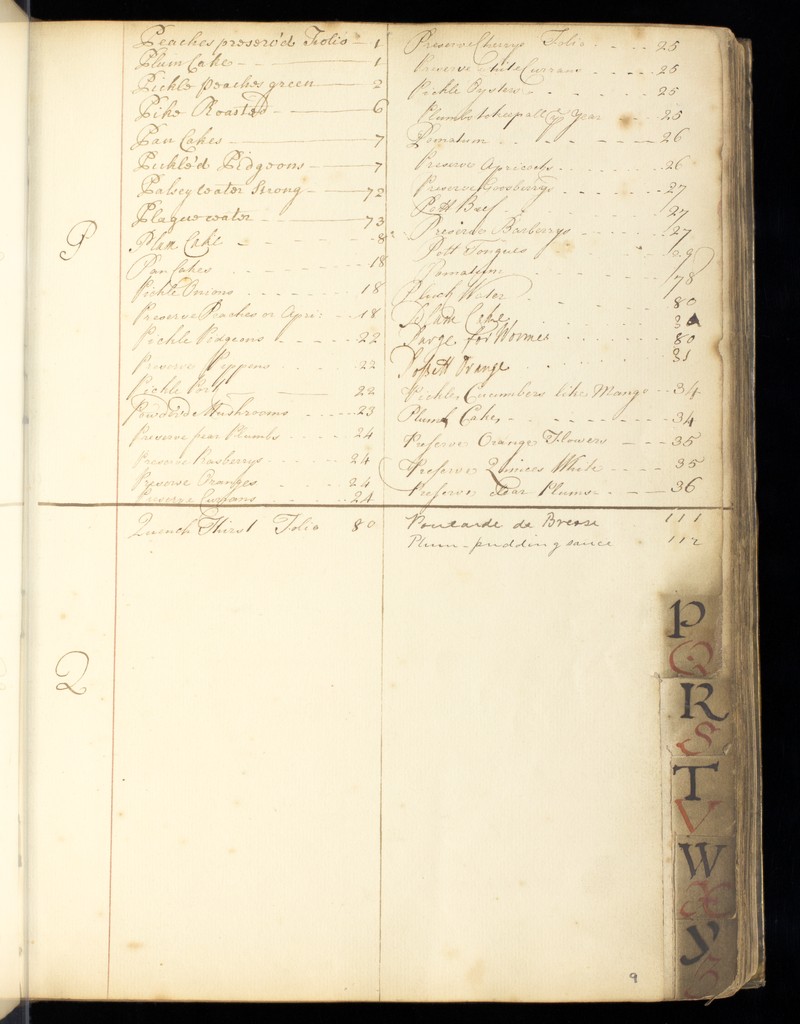 P
Peaches preserv'd Folio — 1
Plum Cake — 1
Pickle peaches green — 2
Pike Roasted — 6
Pan Cakes — 7
Pickle'd Pidgeons — 7
Palsey water Strong — 72
Plague water — 73
Plam Cake — 8
Pan Cakes 18
Pickle Onions 18
Preserve Peaches or Apri: 18
Pickle Pidgeons 22
Preserve Peppens 22
Pickle Pork 22
Powder'd Mushrooms 23
Preserve pear Plumbs 24
Preserve Rasberrys 24
Preserve Oranges 24
Preserve Currans 24
Preserve Cherrys Folio 25
Preserve white Currans 25
Pickle Oysters 25
Plumbs to keep all ye Year 25
Pomatum 26
Preserve Apricocks 26
Preserve Gooberrys 27
Pott Beef 27
Preserve Barberrys 27
Pott Tongues 28
Pomatum 78
Water 80
Plam Cake 30
Purge for Wormes 80
Possett Orange 31
Pickle Cucumbers like Mango 34
Plumb Cake 34
Preserve Orange Flowers 35
Preserve Quinces White 35
Preserve Pear Plums 36
Q
Quench Thirst Folio 80
Poularde de Bresse 111
Plum-pudding sauce 112
P
Q
R
S
T
V
W
X
Y
Z
9